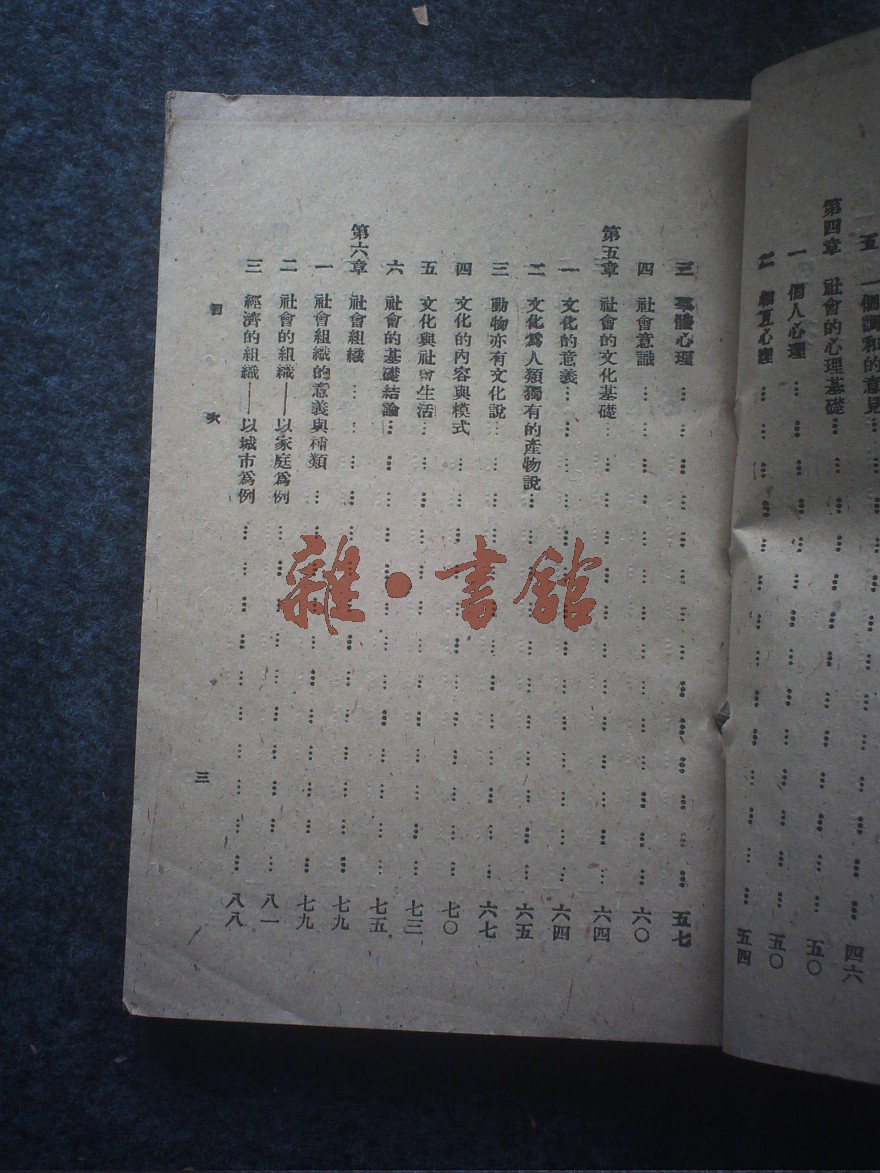 五 一個調和的意見 四六
第四章 社會的心理基礎 五〇
一 個人心理 五〇
二 相互心理 五四
三 羣體心理 五七
四 社會意識 六〇
第五章 社會的文化基礎 六四
一 文化的意義 六四
二 文化爲人類獨有的產物說 六五
三 動物亦有文化說 六七
四 文化的內容與模式 七〇
五 文化與社會生活 七三
六 社會的基礎結論 七五
第六章 社會組織 七九
一 社會組織的意義與種類 七九
二 社會的組織——以家庭爲例 八一
三 經濟的組織——以城市爲例 八八
次
三
雜·書館